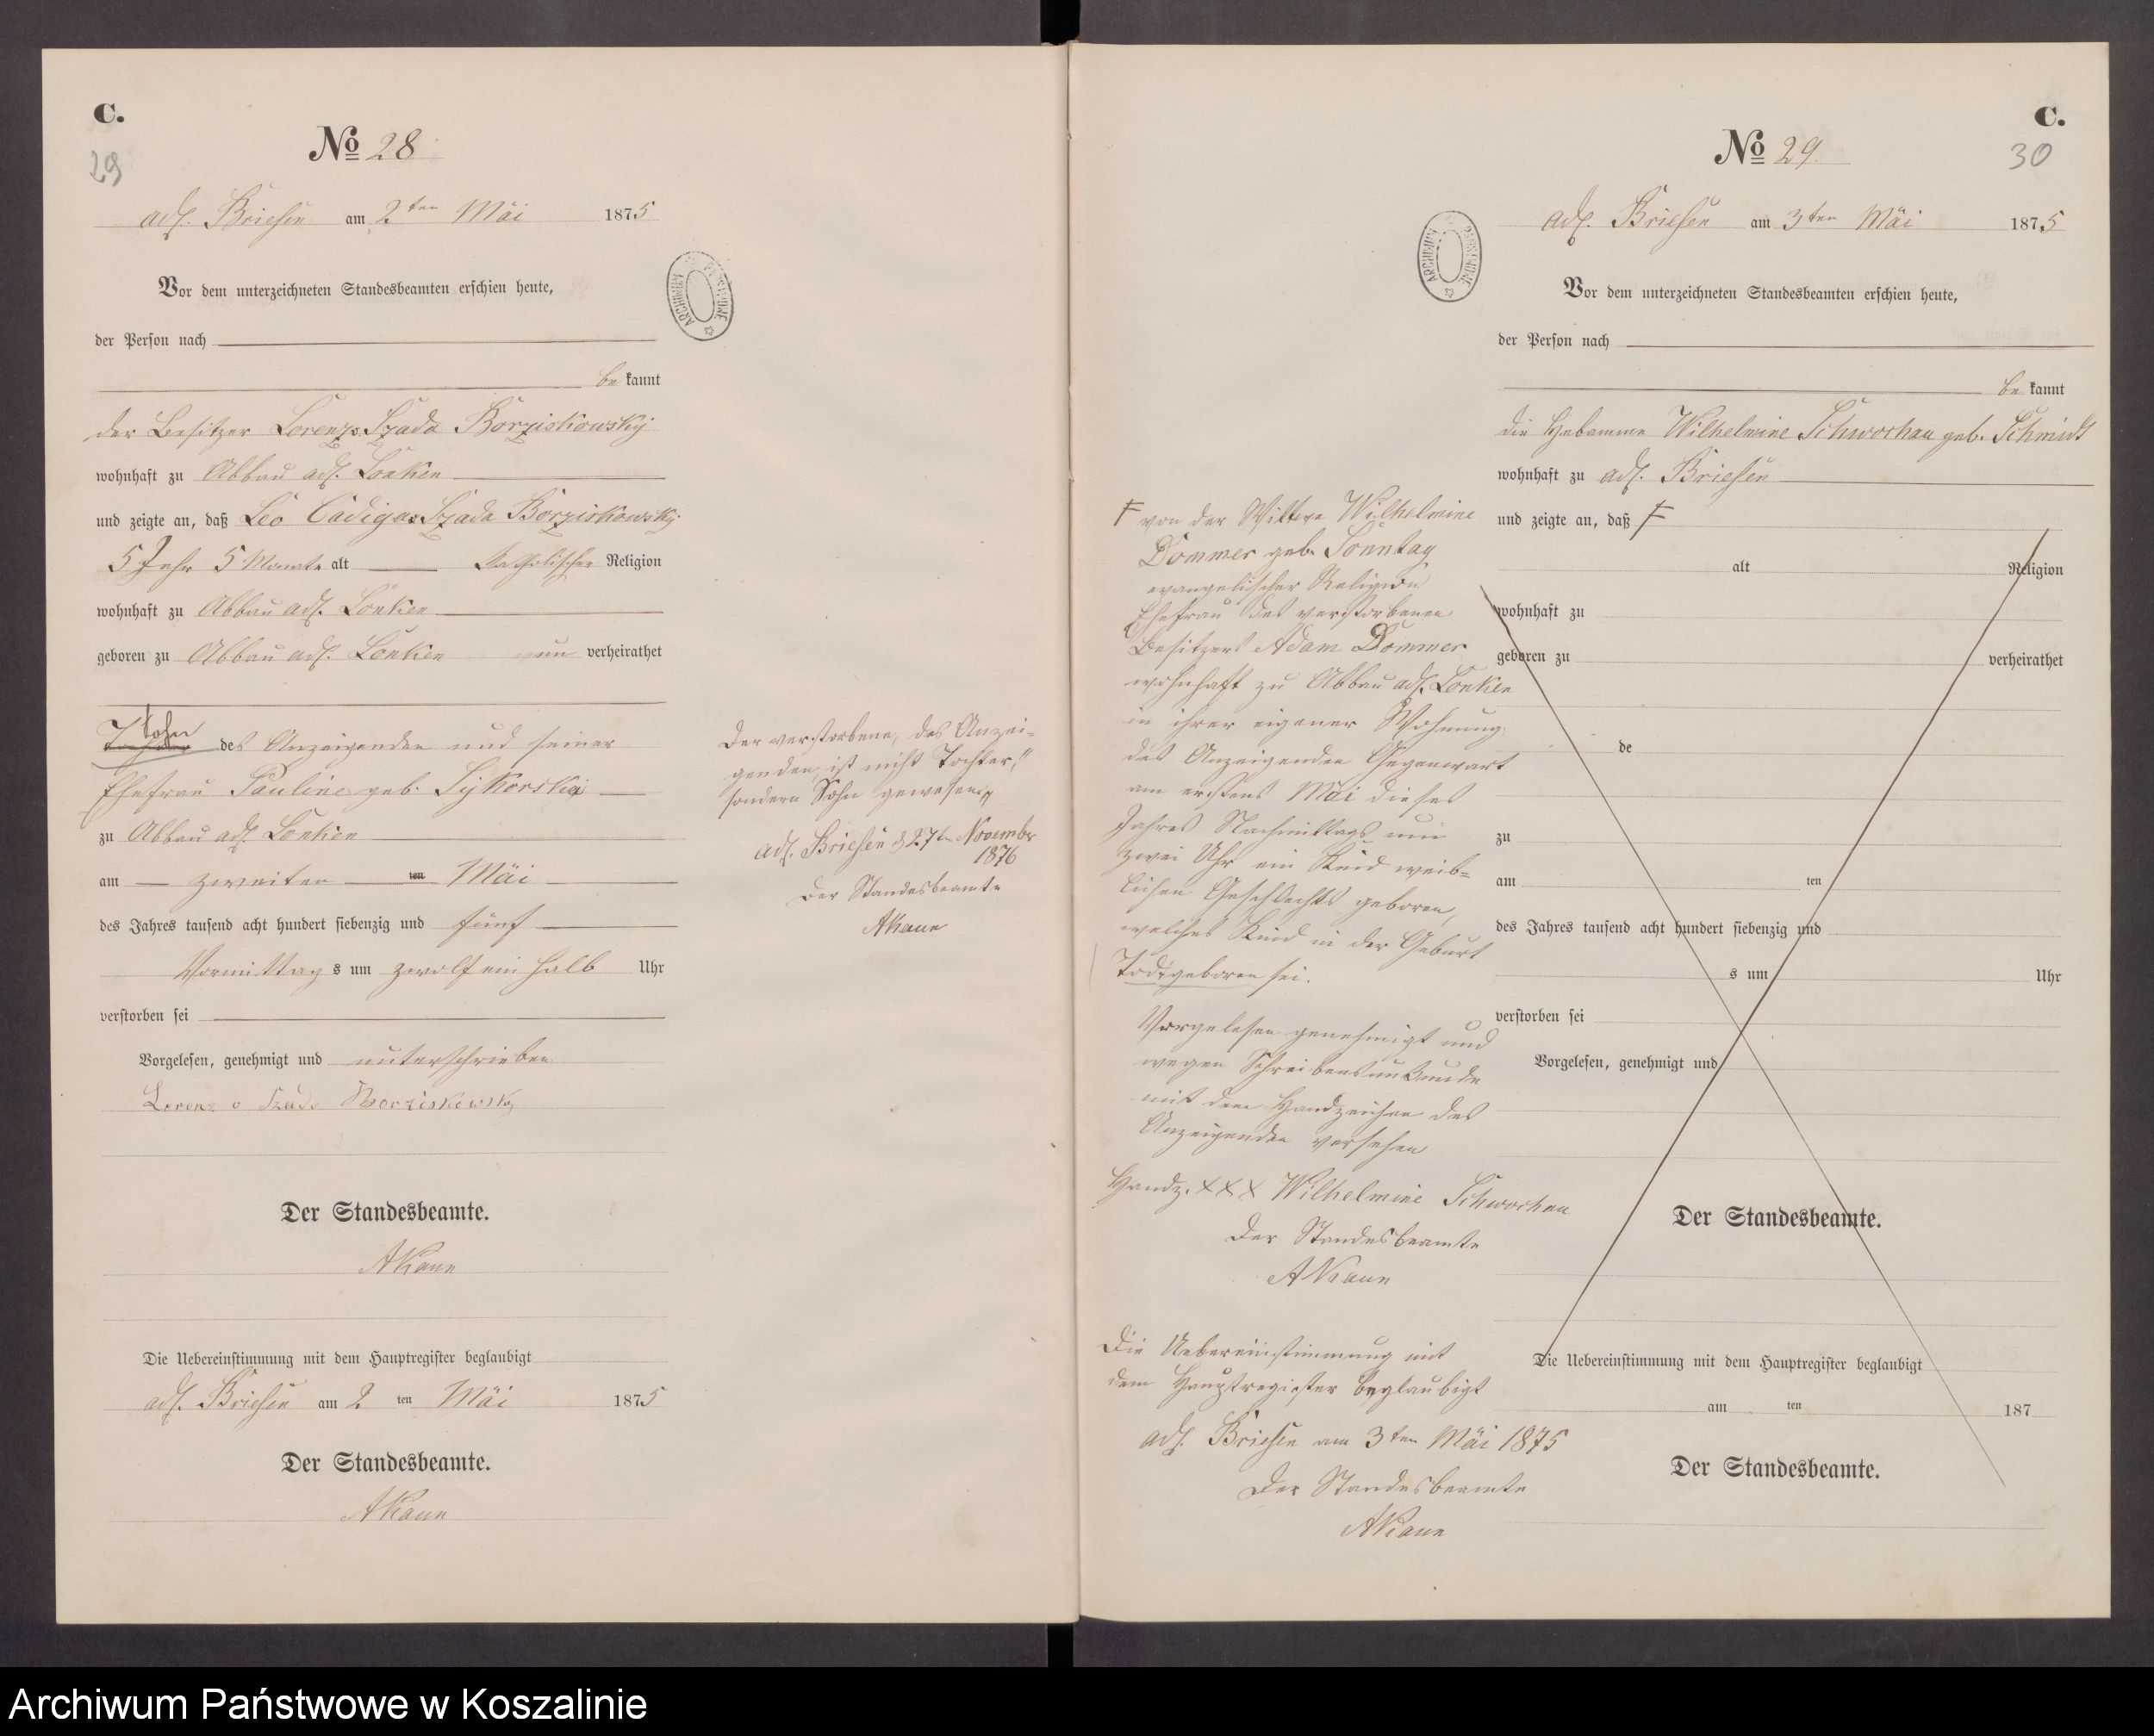 C.
29
No 28
adl. Briesen am 2ten Mai 1875
Vor dem unterzeichneten Standesbeamten erschien heute,
der Person nach
be kannt
der Besitzer Lorenz o Szada Borziskowsky
wohnhaft zu Abbau adl. Lonken
und zeigte an, daß Leo Szada Borziskowsky
5 Jahr 5 Monate alt katholischer Religion
wohnhaft zu Abbau adl. Lonken
geboren zu Abbau adl. Lonken un verheirathet
Sohn
Tochter des Anzeigenden und seiner
Ehefrau Pauline geb. Sykorska
zu Abbau adl. Lonken
am zweiten ten Mai
des Jahres tausend acht hundert siebenzig und fünf
Vormittag s um zwölf ein halb Uhr
verstorben sei
Vorgelesen, genehmigt und unterschrieben
Lorenz o Szada Borziskowsky
Der Standesbeamte.
AKaun
Die Uebereinstimmung mit dem Hauptregister beglaubigt
adl. Briesen am 2 ten Mai 1875
Der Standesbeamte.
AKaun
Der verstorbene, des Anzei-
genden, ist nicht Tochter,
sondern Sohn gewesen
adl. Briesen d 27t November
1876
Der Standesbeamte
AKaun
ARCHIWUM PAŃSTWOWE
C.
30
No 29.
adl. Briesen am 3ten Mai 1875
Vor dem unterzeichneten Standesbeamten erschien heute,
der Person nach
be kannt
die Hebamme Wilhelmine Schwochau geb. Schmidt
wohnhaft zu adl. Briesen
und zeigte an, daß
alt Religion
wohnhaft zu
geboren zu verheirathet
de
zu
am ten
des Jahres tausend acht hundert siebenzig und
s um Uhr
verstorben sei
Vorgelesen, genehmigt und
Der Standesbeamte.
Die Uebereinstimmung mit dem Hauptregister beglaubigt
am ten 187
Der Standesbeamte.
ARCHIWUM PAŃSTWOWE
von der Wittwe Wilhelmine
Dommer geb. Sonntag
evangelischer Religion
Ehefrau des verstorbenen
Besitzers Adam Dommer
wohnhaft zu Abbau adl. Lonken
in ihrer eigener Wohnung
des Anzeigenden Gegenwart
am erstens Mai dieses
Jahres Nachmittags um
zwei Uhr ein Kind weib-
lichen Geschlechts geboren,
welches Kind in der Geburt
Todtgeboren sei.
Vorgelesen genehmigt und
wegen Schreibensunkunde
mit dem Handzeichen des
Anzeigenden versehen
Handz. XXX Wilhelmine Schwochau
Der Standesbeamte
AKaun
Die Uebereinstimmung mit
dem Hauptregister beglaubigt
adl. Briesen am 3ten Mai 1875
Der Standesbeamte
AKaun
Archiwum Państwowe w Koszalinie